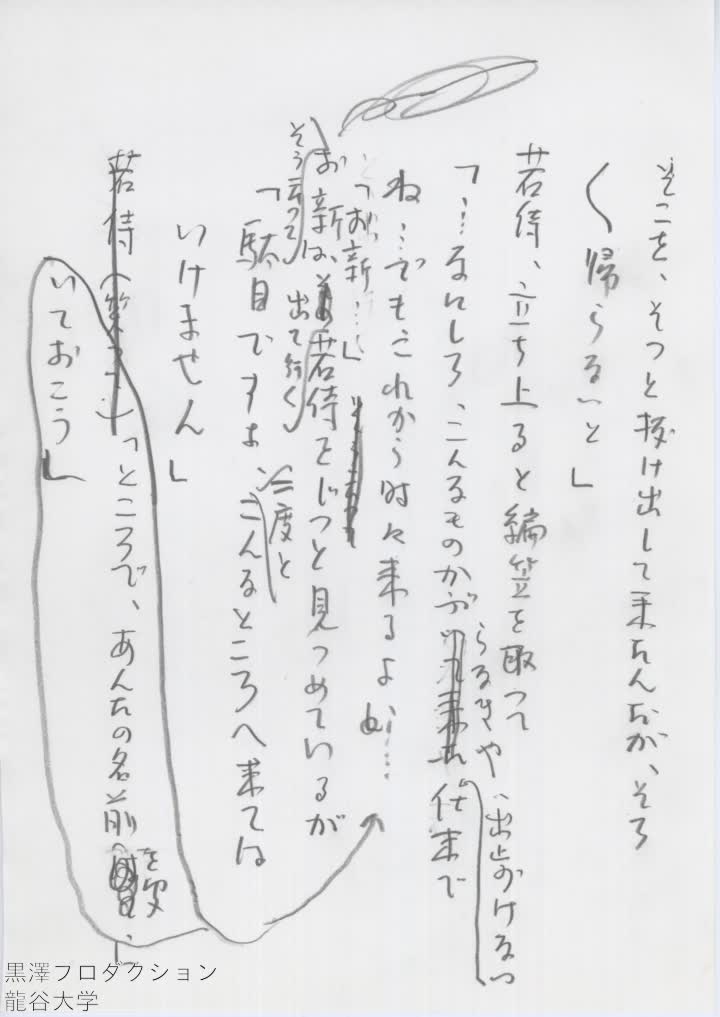 そこを、そっと抜け出して来たんだが、そろ
〱帰らないと」
若侍、立ち上ると編笠を取って
「…なにしろ、こんなものかぶ
らなきや、出かけない
仕末で
ね…でもこれから時々来るよ……
「お新…」
お新は、若侍をじっと見つめているが
そう云って出て行く
「駄目ですよ、こんなところへ来ては
二度と
いけません」
若侍(笑って)「ところで、あんたの名前
を覚
いておこう」
黒澤プロダクション
龍谷大学